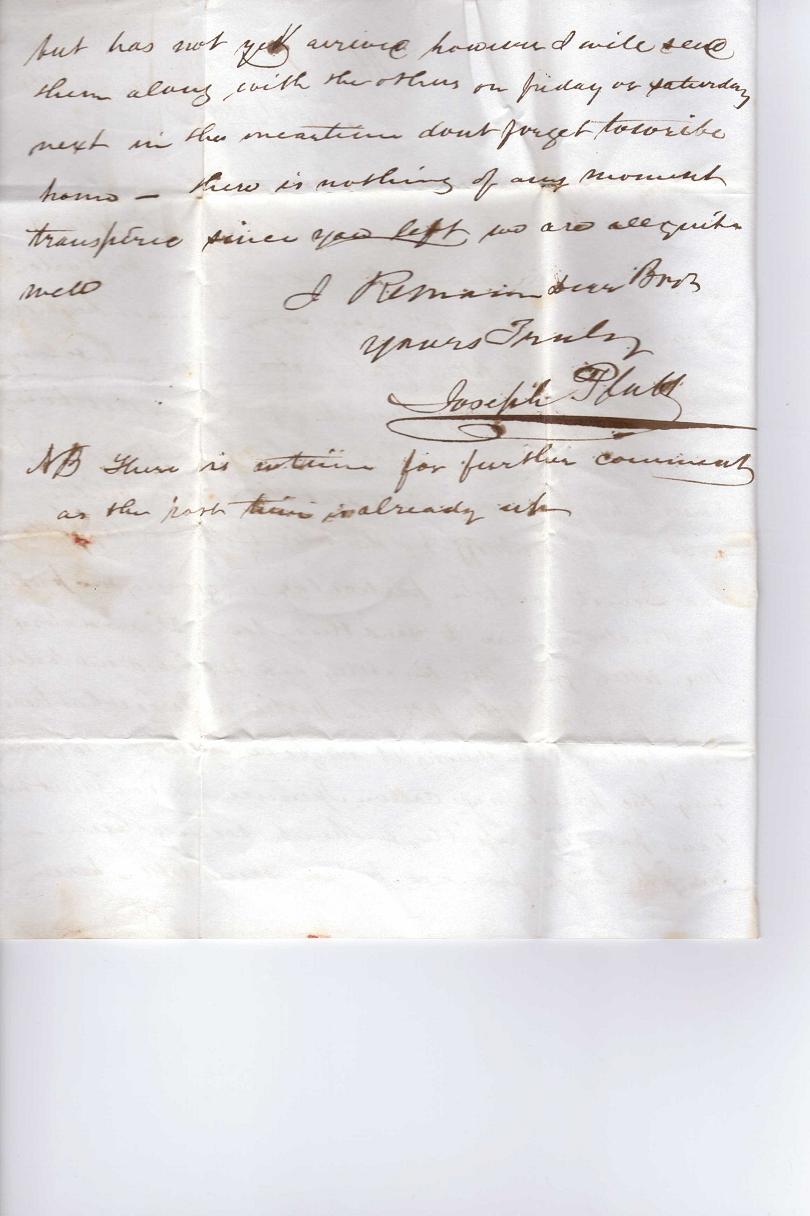 but has not yet arrived however I will send
them along with the others on friday or saturday
next in the meantime dont forget to write
home — there is nothing of any moment
transpired since you left we are all quite
well
I Remain dear Bro
yours Truly
Joseph
NB There is no time for further comment
as the post time is already up